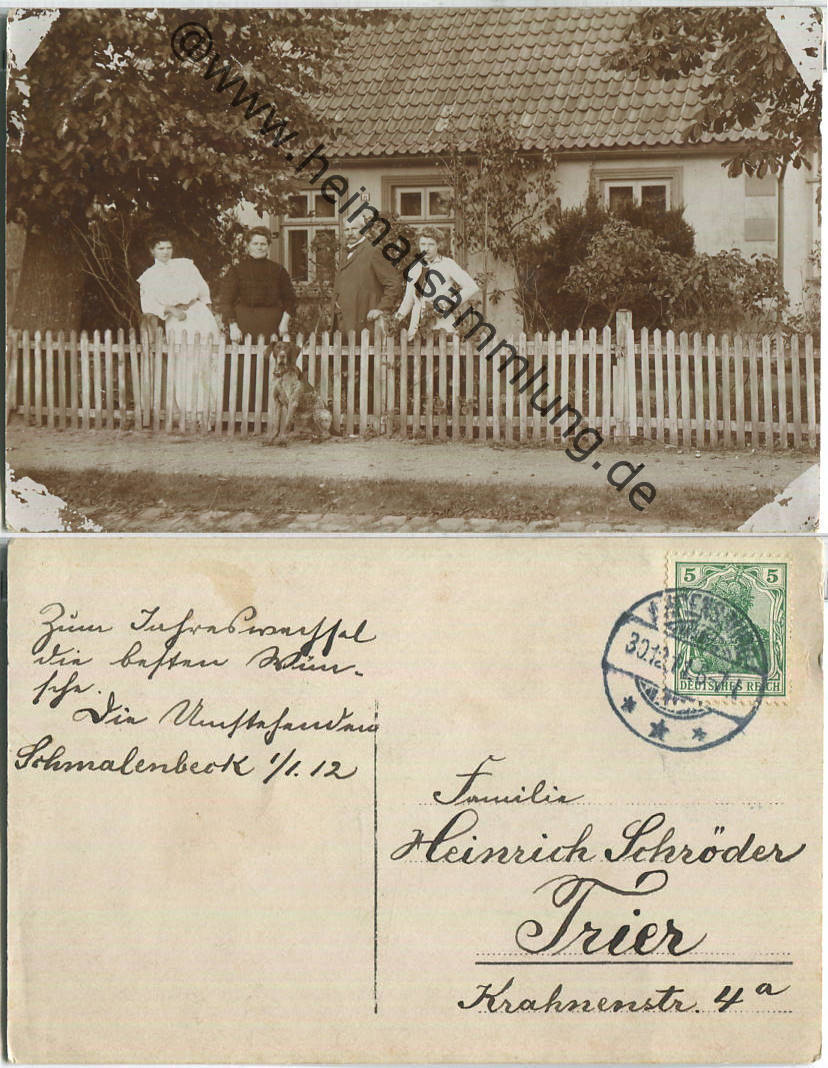 ©www.heimatsammlung.de
Zum Jahreswechsel
die besten Wün-
sche.
Die Umstehenden
Schmalenbeck 1/1. 12
5 5
DEUTSCHES REICH
30.12.11
Familie
Heinrich Schröder
Trier
Krahnenstr. 4a